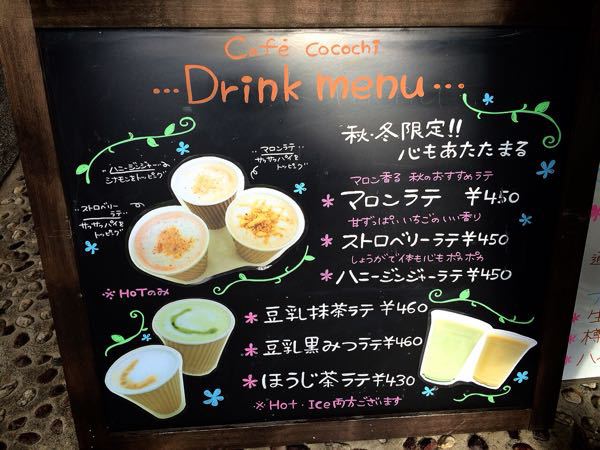 Café cocochi
...Drink menu...
秋・冬限定!!
心もあたたまる
マロン香る 秋のおすすめラテ
* マロンラテ ¥450
甘ずっぱいいちごのいい香り
* ストロベリーラテ ¥450
しょうがで体も心もポカポカ
* ハニージンジャーラテ ¥450
マロンラテ
サッサッパイを
トッピング
ハニージンジャー
シナモンをトッピング
ストロベリー
ラテ
サッサッパイを
トッピング
※HOTのみ
* 豆乳抹茶ラテ ¥460
* 豆乳黒みつラテ ¥460
* ほうじ茶ラテ ¥430
※Hot・Ice両方ございます